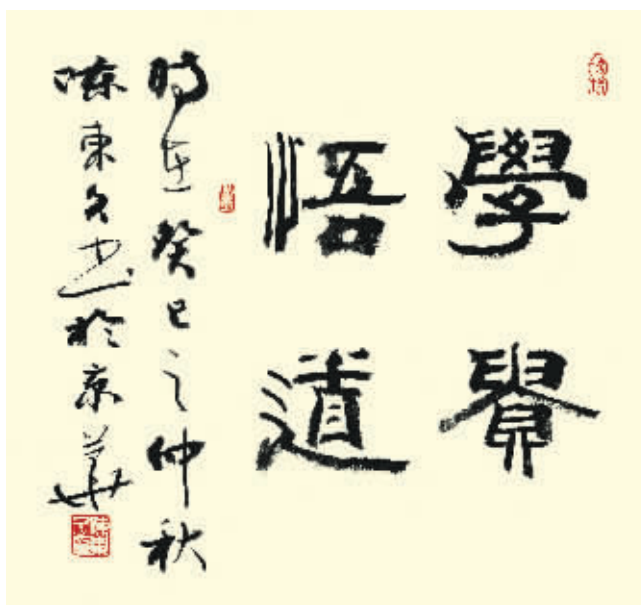 學覺
悟道
時在癸巳之仲秋
陳東久書於京華